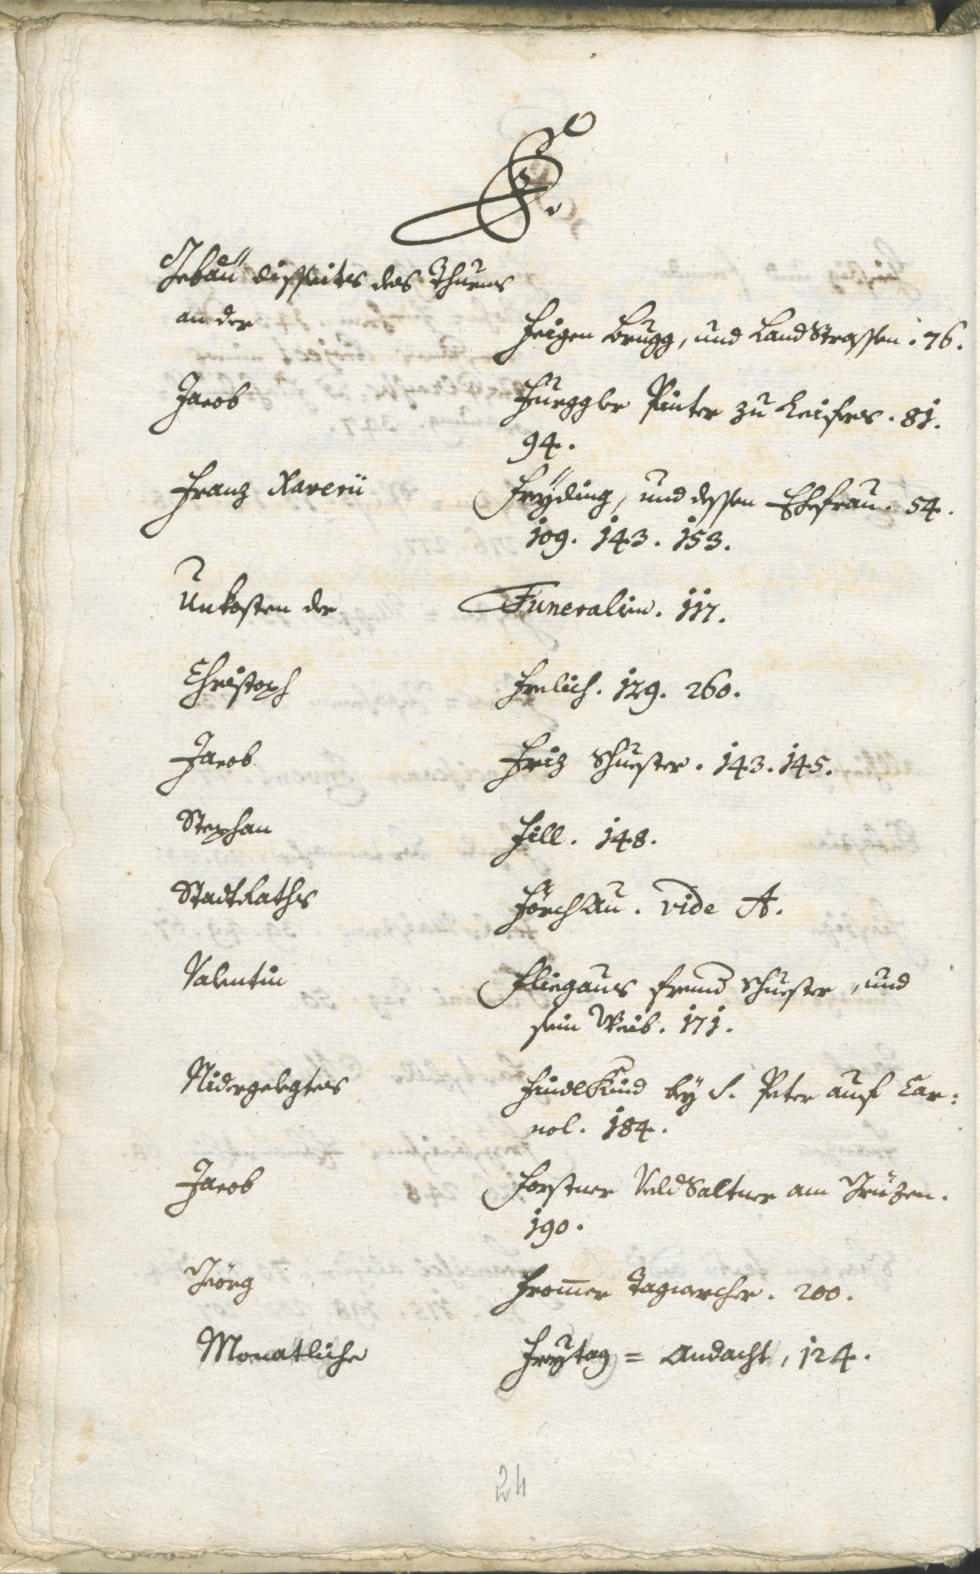 F.
Gebäu disseits des Thurns
an der Feigen Brugg, und LandStrassen. 76.
Jacob Furggler Pinter zu Leifers. 81.
94.
Franz Xaverii Freyding, und dessen Ehefrau. 54.
109. 143. 153.
Unkosten der Funeralien. 117.
Christoph Frelich. 129. 260.
Jacob Friz Schuester. 143. 145.
Stephan Fill. 148.
StadtRaths FörchAu. vide A.
Valentin Fliegaus fremd Schuester, und
sein Weib. 171.
Nidergelegtes FindlKind bey S. Peter auf Car:
nol. 184.
Jacob Forstner VeldSaltner am Grüzen.
190.
Görg Fromer Tagwercher. 200.
Monatliche Freytag = Andacht, 124.
24